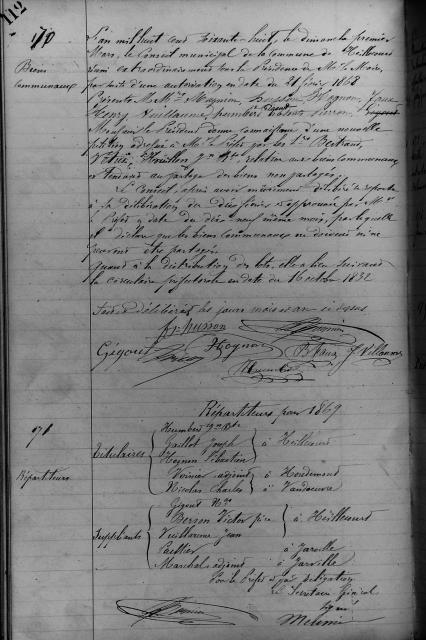 112
70
Biens
communaux
L'an mil huit cent soixante-huit, le dimanche premier
Mars, le Conseil municipal de la commune de Heillecourt
réuni extraordinairement sous la Présidence de Mr le Maire,
par suite d'une autorisation en date du 21 février 1868
Présents M. Mrs
Henry Vuillaume, Humbert
Monsieur le Président donne connaissance d'une nouvelle
pétition adressée à Mr le Préfet par les Srs Bertrand,
relative aux biens communaux
et tendant au partage des biens non partagés,
Le Conseil, après avoir mûrement délibéré
à sa délibération du dix février approuvée par Mr
le Préfet en date du dix neuf même mois, par laquelle
il déclare que les biens communaux ne doivent ni ne
peuvent être partagés
Quant à la distribution des lots, elle a lieu suivant
la circulaire préfectorale en date du 16 octobre 1832
Fait et délibéré les jours, mois et an ci dessus
husson
Grégoire
Hognon
71
Répartiteurs
Répartiteurs pour 1869
Titulaires
Humbert
Gaillot Joseph
Hognon Sébastien
à Heillecourt
Voinier adjoint à Houdemont
Nicolas Charles à Vandoeuvre
Suppléants
Gegout
Berson Victor père
Vuillaume Jean
à Heillecourt
à Jarville
Marchal adjoint à Jarville
Pour le Préfet et par délégation
Le Secrétaire Général
signé